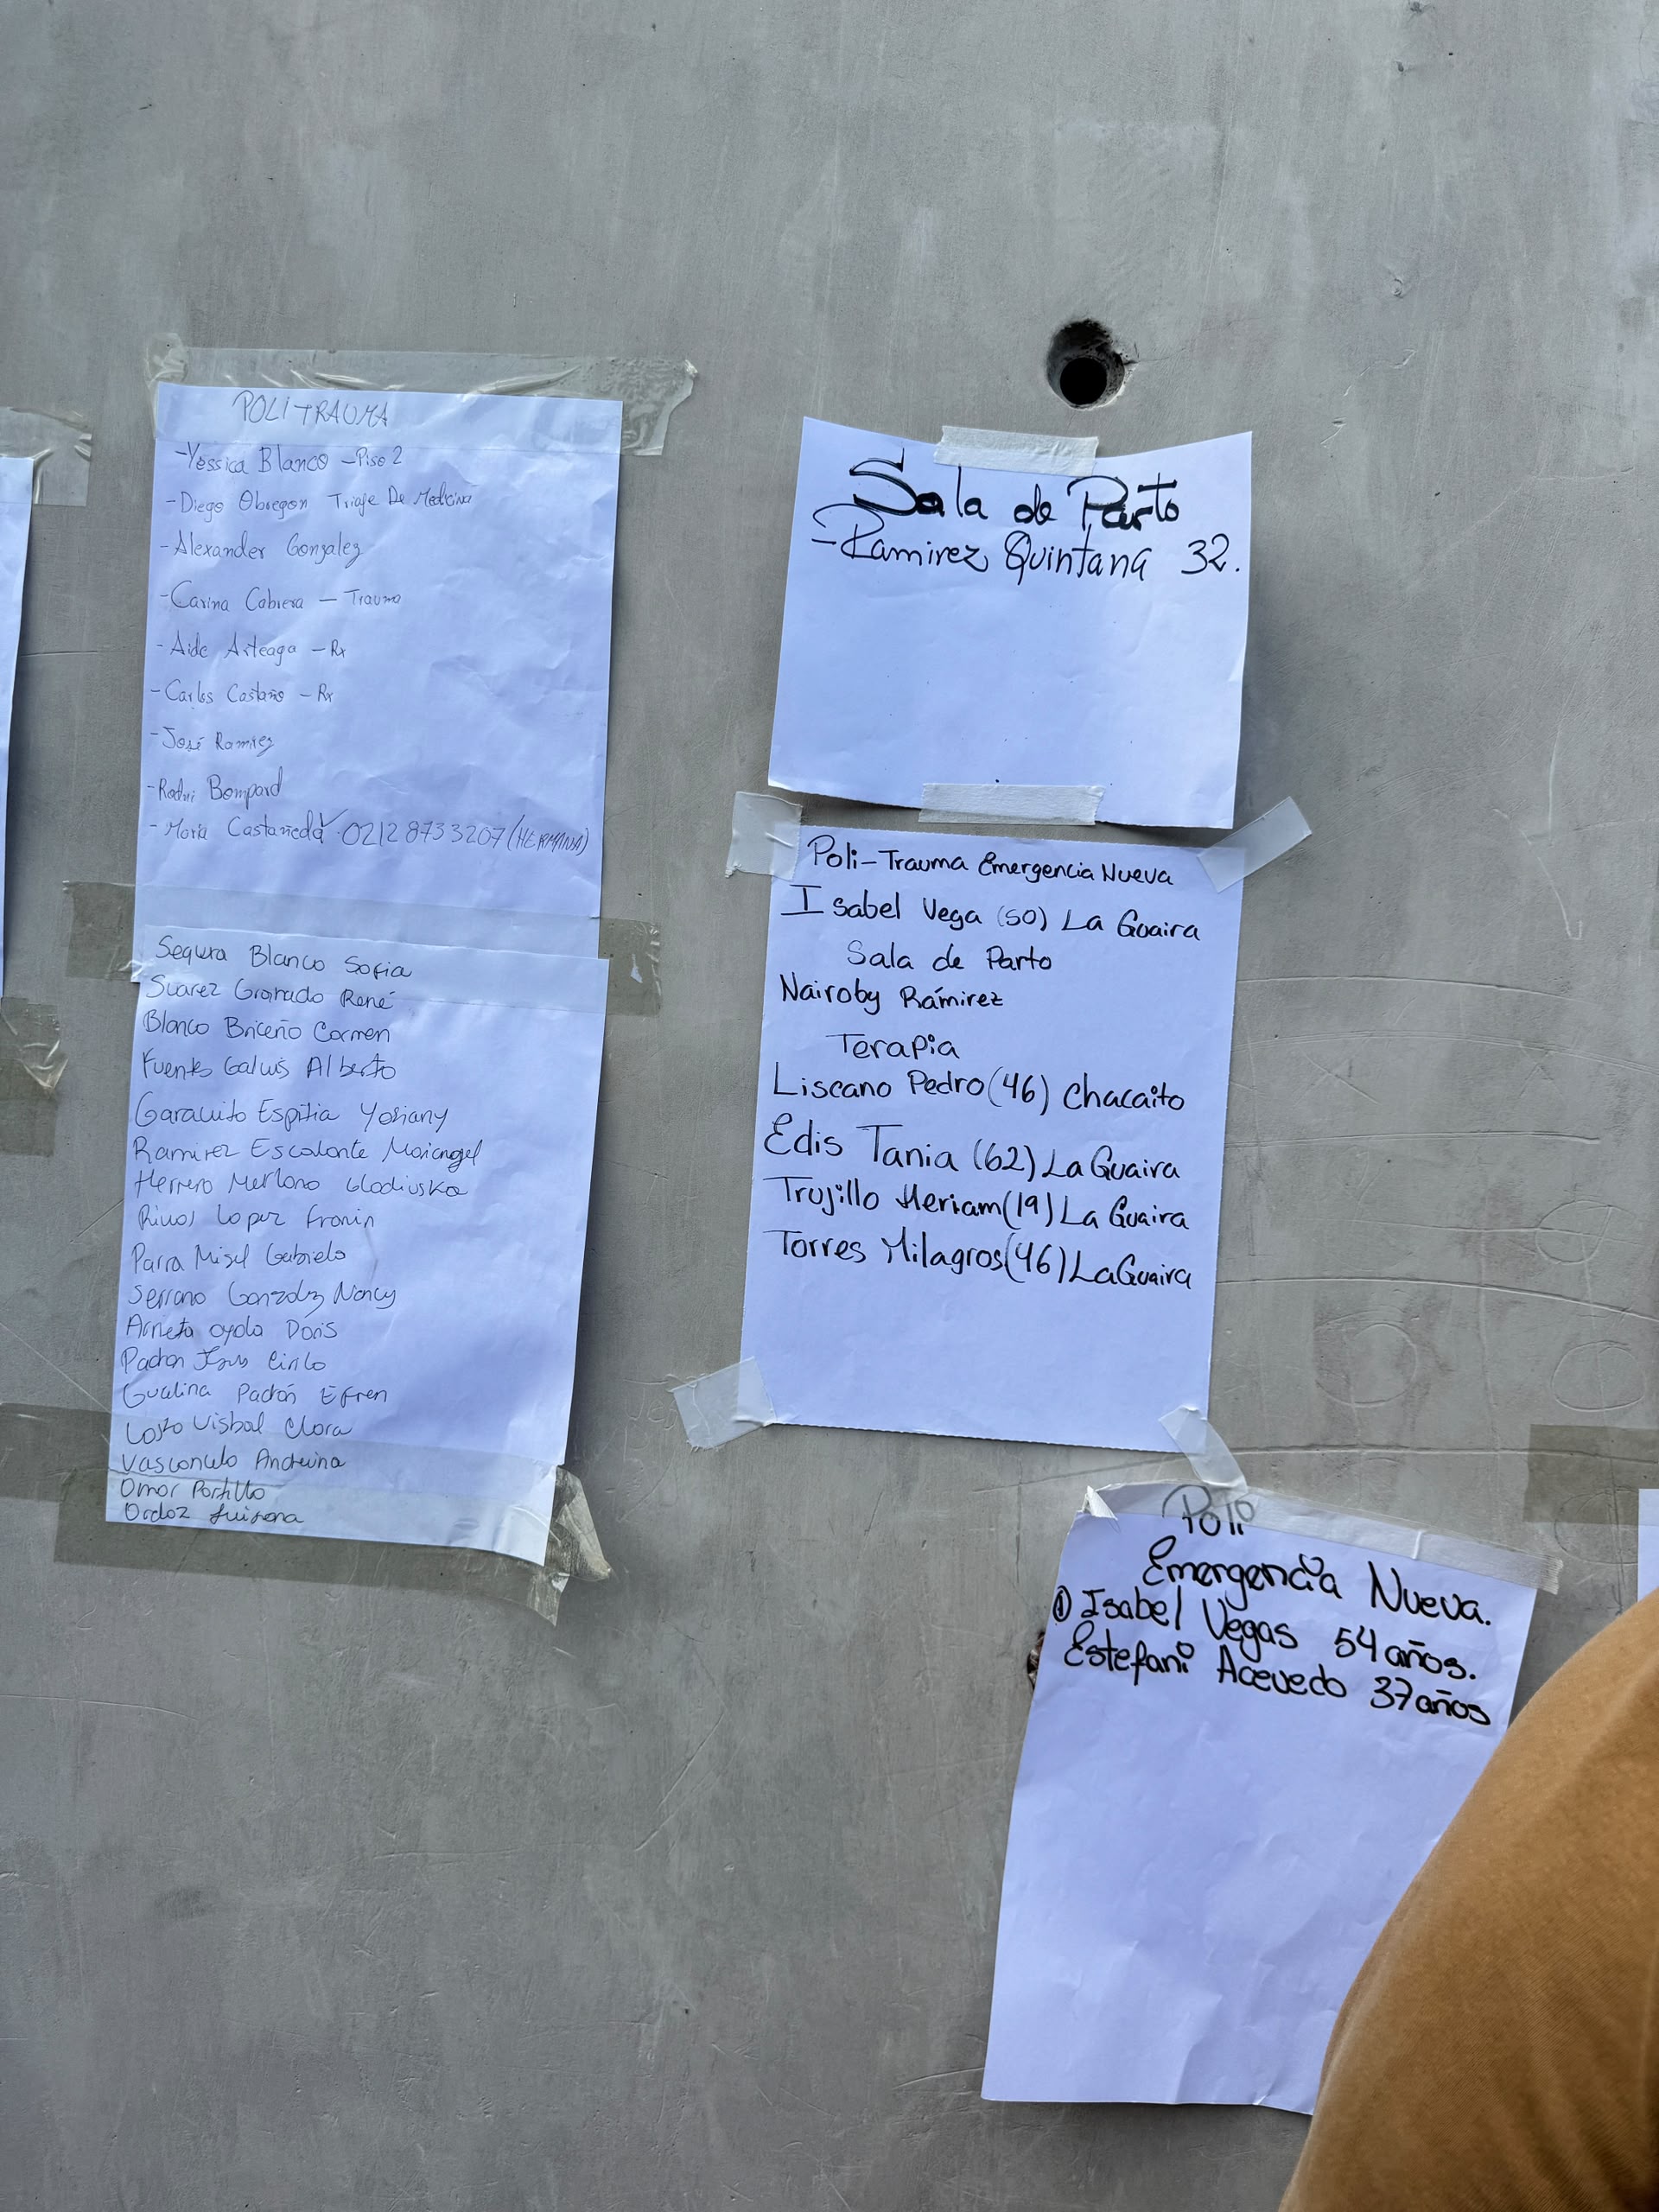 POLITRAUMA
-Yessica Blanco -Piso 2
-Diego Obregon Triaje De Medicina
-Alexander Gonzalez
-Carina Cabrera - Trauma
-Aide Arteaga -Rx
-Carlos Castaño -Rx
-José Ramirez
-Rodni Bompard
-Maria Castañeda 02128733207 (HERMANA)
Segura Blanco Sofia
Suarez Granado René
Blanco Briceño Carmen
Fuentes Galuis Alberto
Garavito Espitia Yosiany
Ramirez Escalante Mariangel
Herrero Merlano
Lopez
Parra Misel Gabriela
Serrano Gonzalez Nancy
Arrieta oyola Doris
Padron
Gualina Padrón Efren
Visbal Clara
Vasconcelo Andreina
Omar Portillo
Ordoz
Sala de Parto
-Ramirez Quintana 32.
Poli-Trauma Emergencia Nueva
Isabel Vega (50) La Guaira
Sala de Parto
Nairoby Rámirez
Terapia
Liscano Pedro (46) Chacaito
Edis Tania (62) La Guaira
Trujillo Meriam (19) La Guaira
Torres Milagros (46) La Guaira
Poli
Emergencia Nueva.
① Isabel Vegas 54 años.
Estefani Acevedo 37 años